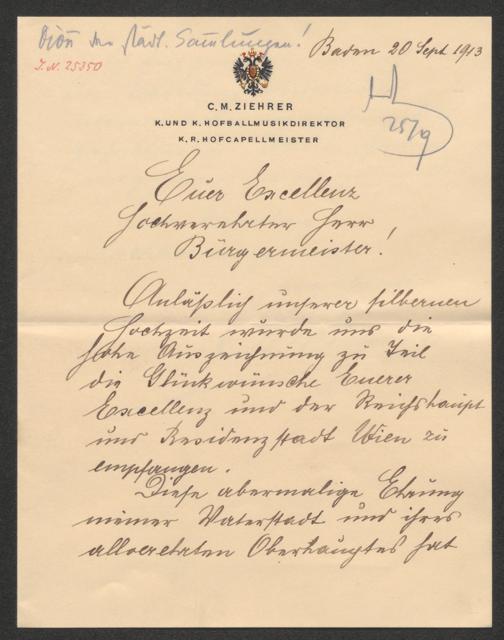 der städt. Sammlungen!
J. N. 25350
Baden 20 Sept 1913
C. M. ZIEHRER
K. UND K. HOFBALLMUSIKDIREKTOR
K. R. HOFCAPELLMEISTER
25/9
Euer Excellenz
Hochverehrter Herr
Bürgermeister!
Anläßlich unserer silbernen
Hochzeit wurde uns die
hohe Auszeichnung zu Teil
die Glückwünsche Euerer
Excellenz und der Reichshaupt
und Residenzstadt Wien zu
empfangen.
Diese abermalige Ehrung
meiner Vaterstadt und ihres
allverehrten Oberhauptes hat